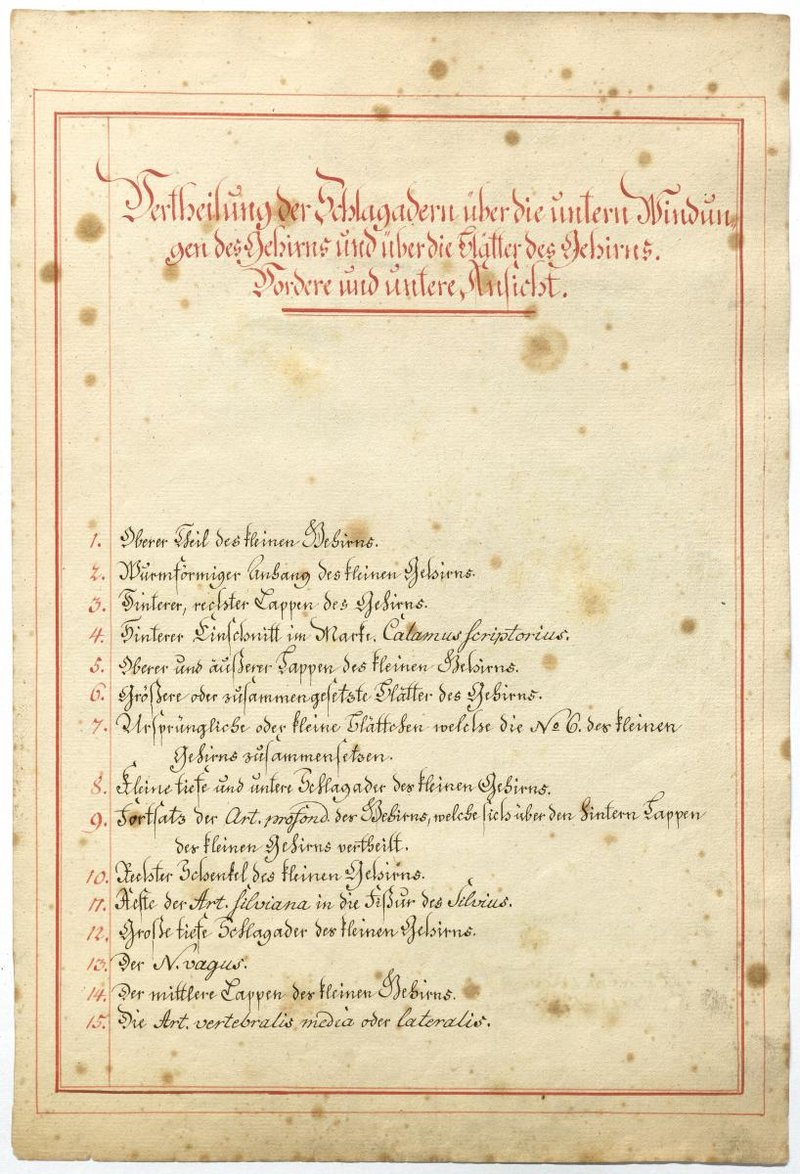 Vertheilung der Schlagadern über die untern Windun-
gen des Gehirns und über die Blätter des Gehirns.
Vordere und untere Ansicht.
1. Oberer Theil des kleinen Gehirns.
2. Wurmförmiger Anhang des kleinen Gehirns.
3. Hinterer, rechter Lappen des Gehirns.
4. Hinterer Einschnitt im Marke. Calamus scriptorius.
5. Oberer und äußerer Lappen des kleinen Gehirns.
6. Größere oder zusammengesetzte Blätter des Gehirns.
7. Ursprüngliche oder kleine Blättchen welche die No 6. des kleinen
Gehirns zusammensetzen.
8. Kleine tiefe und untere Schlagader des kleinen Gehirns.
9. Fortsatz der Art. profond. des Gehirns, welche sich über den hintern Lappen
des kleinen Gehirns vertheilt.
10. Rechter Schenkel des kleinen Gehirns.
11. Aeste der Art. silviana in die Fißur des Silvius.
12. Große tiefe Schlagader des kleinen Gehirns.
13. Der N. vagus.
14. Der mittlere Lappen des kleinen Gehirns.
15. Die Art. vertebralis media oder lateralis.